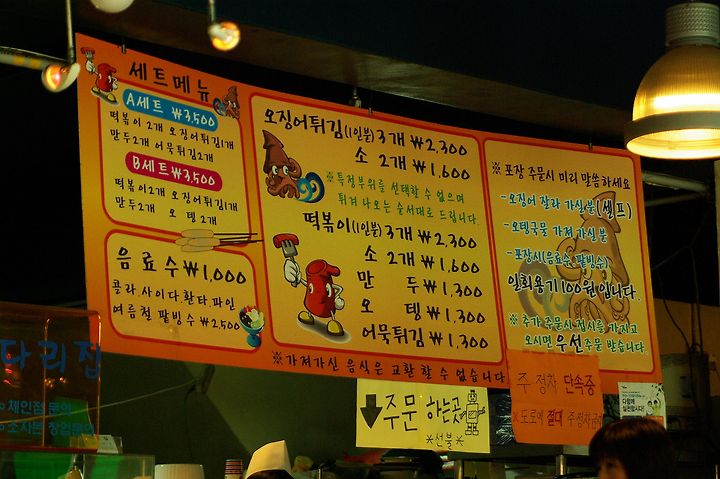 세트메뉴
A세트 ₩3,500
떡볶이 2개 오징어튀김1개
만두2개 어묵튀김2개
B세트 ₩3,500
떡볶이2개 오징어튀김1개
만두2개 오뎅2개
음료수 ₩1,000
콜라 사이다 환타 파인
여름철 팥빙수 ₩2,500
오징어튀김(1인분) 3개 ₩2,300
소 2개 ₩1,600
※특정부위를 선택할 수 없으며
튀겨 나오는 순서대로 드립니다.
떡볶이(1인분) 3개 ₩2,300
소 2개 ₩1,600
만두 ₩1,300
오뎅 ₩1,300
어묵튀김 ₩1,300
※가져가신 음식은 교환 할 수 없습니다.
※ 포장 주문시 미리 말씀하세요
-오징어 잘라 가실분(셀프)
-오뎅국물 가져 가실분
-포장시(음료수,팥빙수)
일회용기 100원 입니다.
※추가 주문시 접시를 가지고
오시면 우선주문 받습니다.
다리집
체인점 문의
소자본 창업문의
주문 하는곳
*선불*
주·정차 단속중
도로에 절대 주정차금